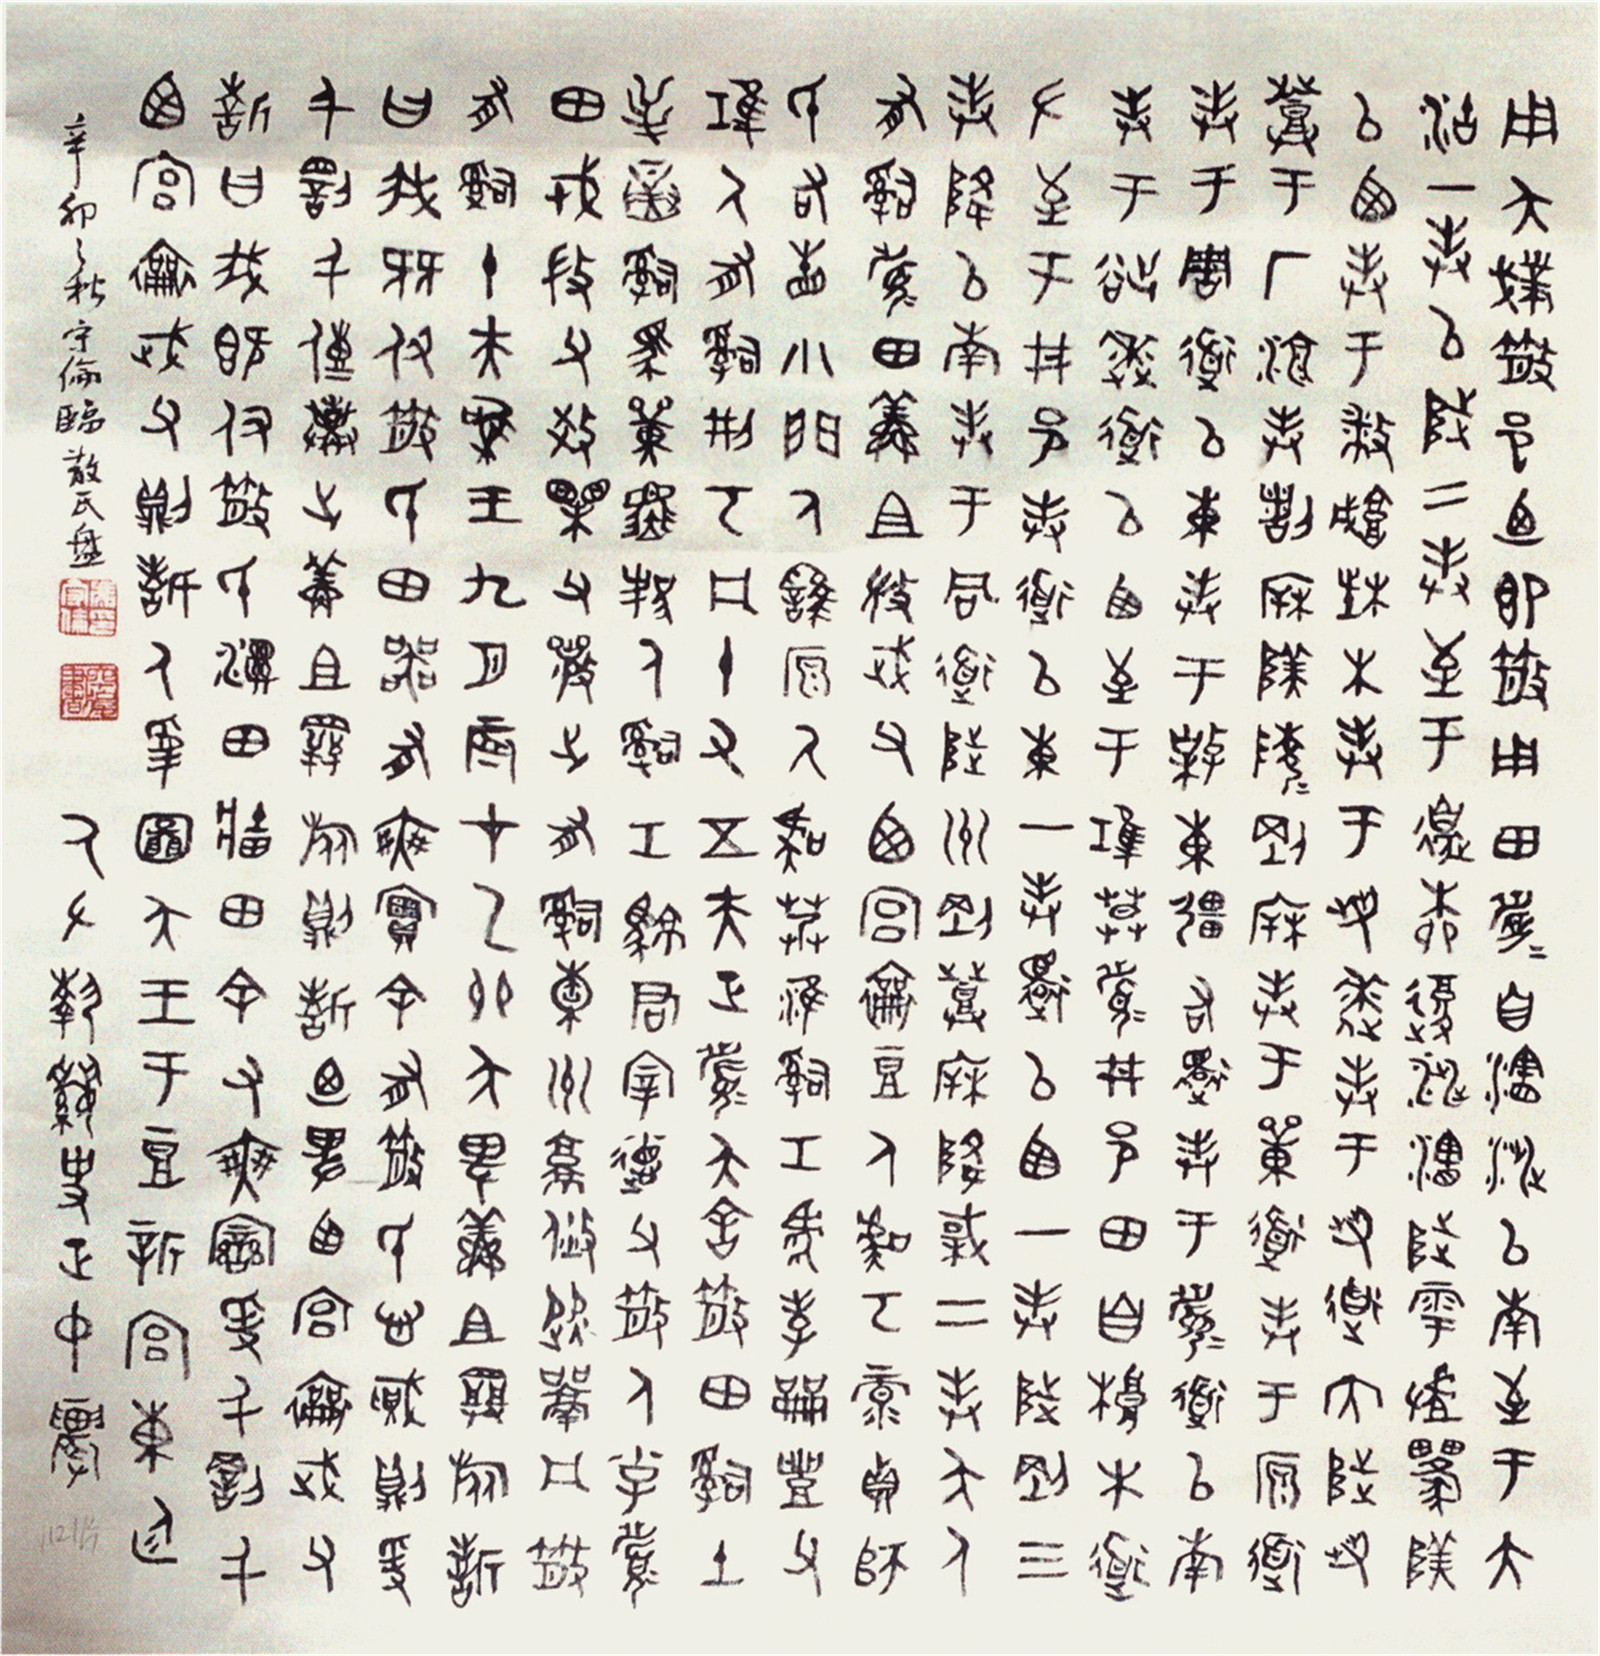 用夨撲散邑乃即散用田眉自瀗涉以南至于大
沽一封以陟二封至于邊柳復涉瀗陟雩陕
以西封于播城楮木封于芻逨封于芻道內陟芻
登于厂湶封諸柝陕陵剛柝封于單道封于原道
封于周道以東封于東疆右還封于眉道以南
封于逨道以西至于莫眉井邑田自桹木道
左至于井邑封道以東一封還以西一封陟剛三
封降以南封于同道陟州剛登柝降棫二封夨人
有司眉田鮮且微武父西宮襄豆人虞丂彔貞師
氏右眚小門人繇原人虞艿淮司工虎孝龠豐父
人有司刑丂凡十又五夫正眉夨舍散田司土
逆寅司馬單人司工君宰德父散人小子眉
田戎微父效父襄之有司橐州京攸從鬲凡散
有司十夫唯王九月辰在乙卯夨卑鮮且旅誓
曰我既付散氏田器有爽實余有散氏心賊則爰
千罰千傳棄之鮮且旅則誓乃卑西宮襄武父
誓曰我既付散氏濕田牆田余又爽變爰千罰千
西宮襄武父則誓厥受圖夨王于豆新宮東廷
厥左執史正中農
辛卯之秋守倫臨散氏盤